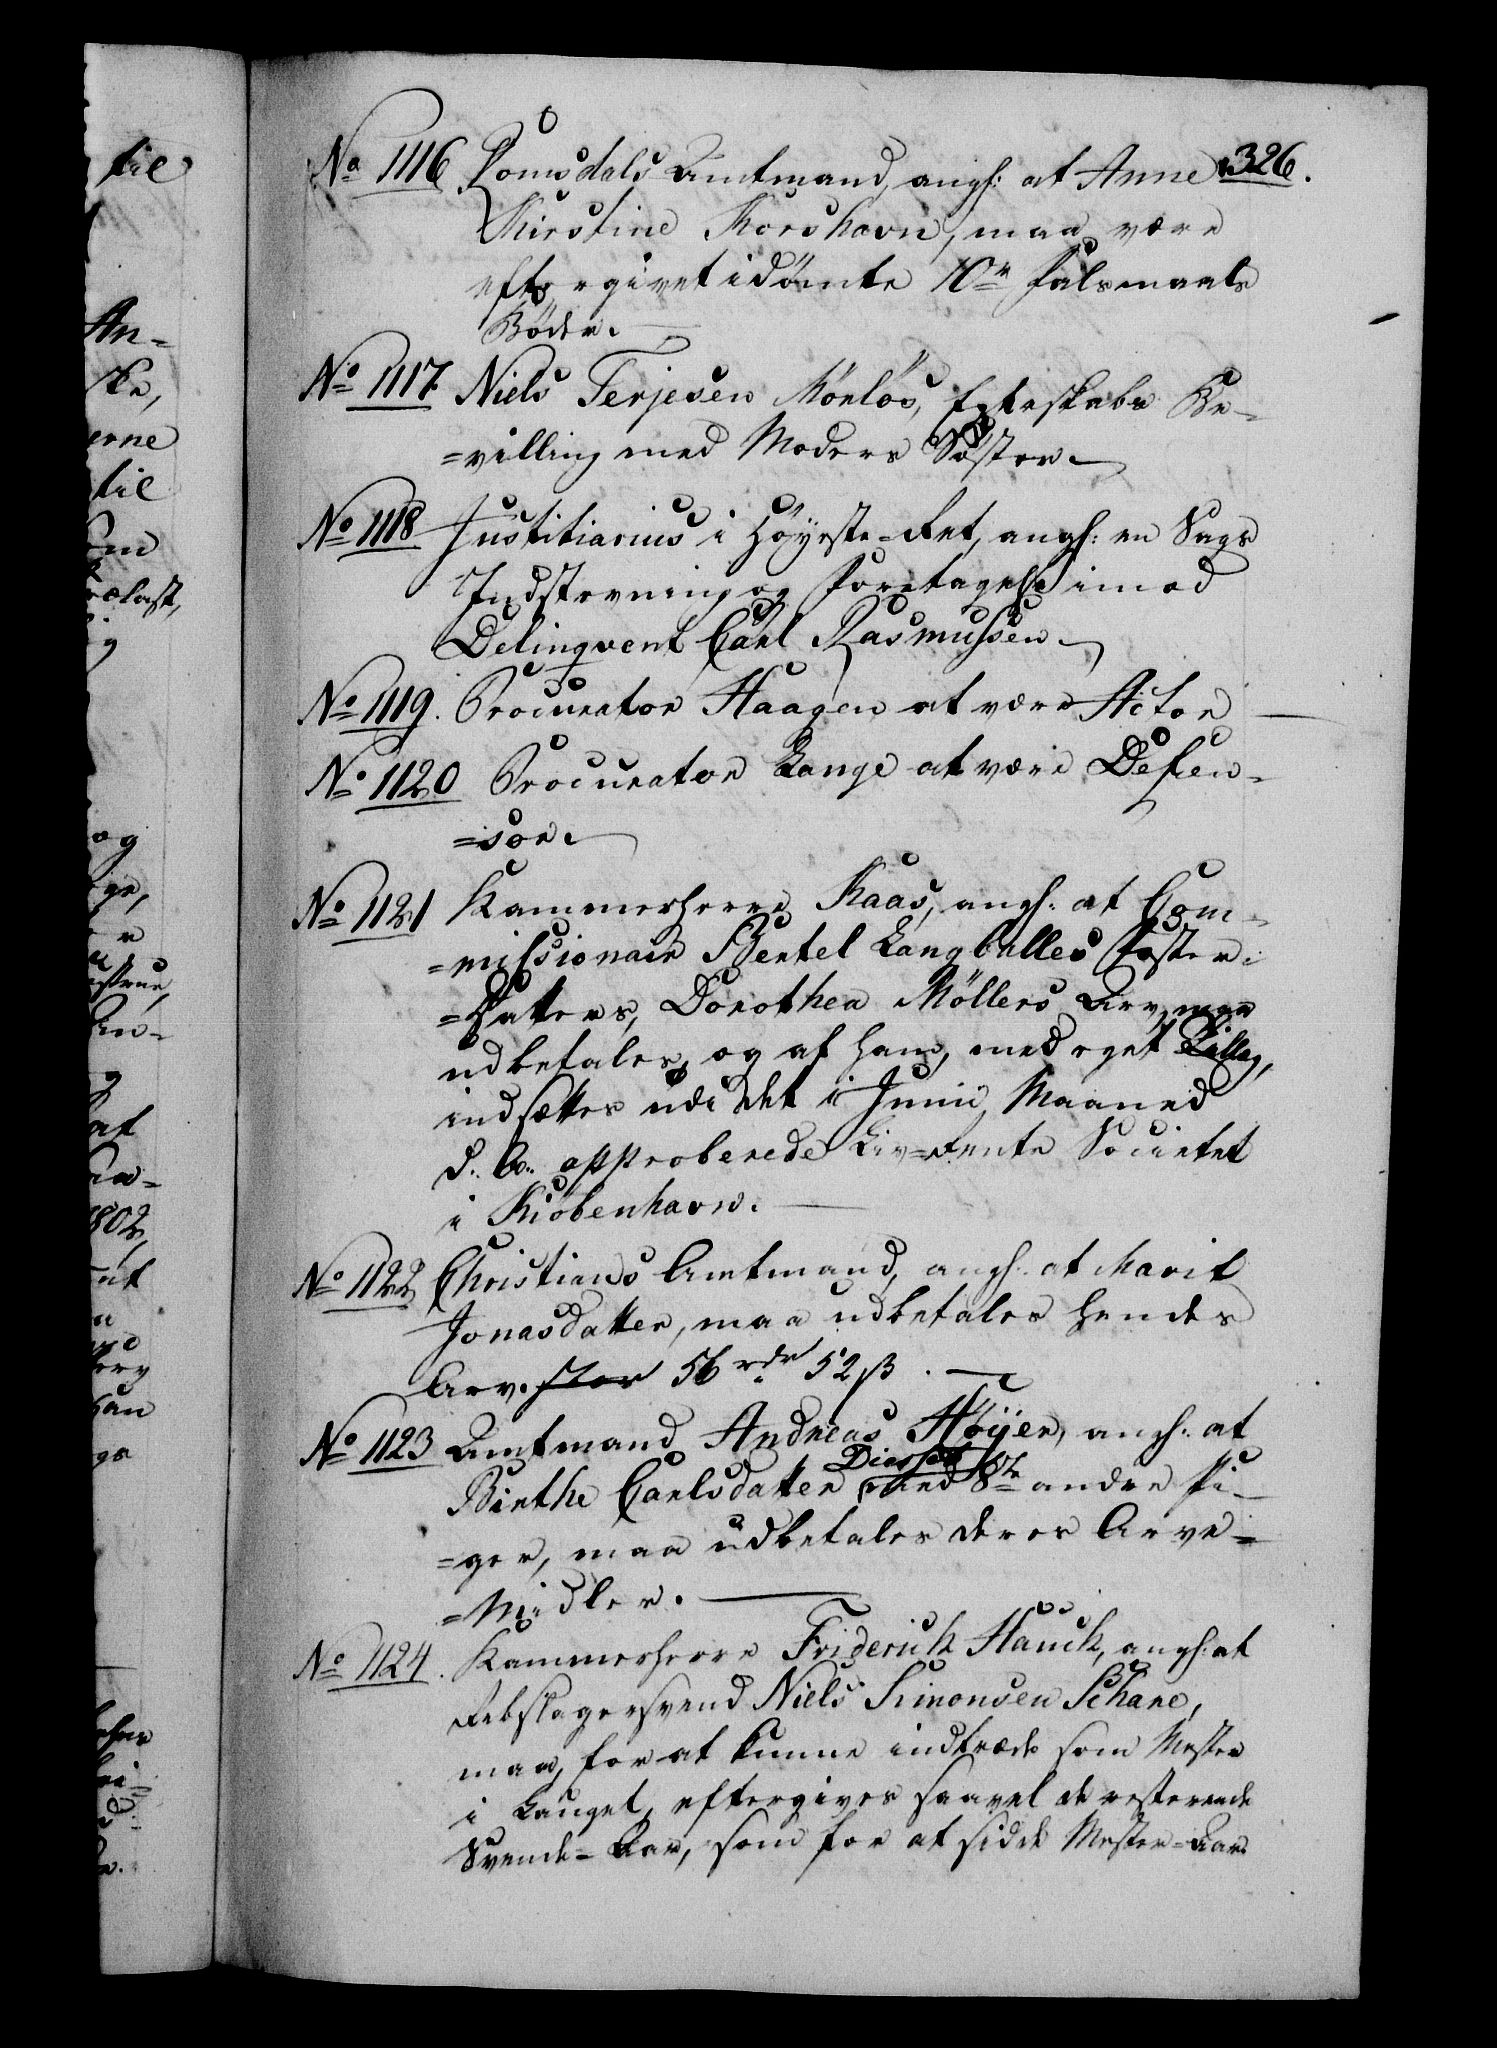 326.
No 1116 Romsdals Amtmand, angh: at Anne
Kirstine Korshavn, maa være
eftergivet idömte 10 rd Falsmaals
Böder.
No 1117 Niels Terjesen Mönlös, Egteskabs Be-
=villing med Moders Söster.
No 1118 Justitiarius i Höyeste=Ret, angh: en Sags
Indstevning og Foretagelse imod
Delinqvent Carl Rasmussen.
No 1119. Procurator Haagen at være Actor
No 1120 Procurator Lange at være Defen-
=sor.
No 1121 Kammerherre Kaas, angh: at Com-
=missionair Bertel Langballes Foster-
=Datters, Dorothea Möllers Arv, maa
udbetales, og af ham, med eget Tillæg,
indsættes udi det i Junii Maaned
d. A. approberede Liv=Rente Societet
i Kiöbenhavn.
No 1122 Christians Amtmand, angh: at Marit
Jonasdatter, maa udbetales hendes
Arv. stor 56 rdr 52 ß.
No 1123 Amtmand Andreas Höyer, angh: at
Birthe Carlsdatter Diesset med 8te andre Pi-
=ger, maa udbetales deres Arve=
=Midler.
No 1124. Kammerherre Friderich Hauch, angh: at
Rebslagersvend Niels Simonsen Schare,
maa, for at kunne indtræde som Mester
i Lauget, eftergives saavel de resterende
Svende=Aar, som for at sidde Mester=Aar
til
An-
ske,
erne
til
og
at
1802,
han